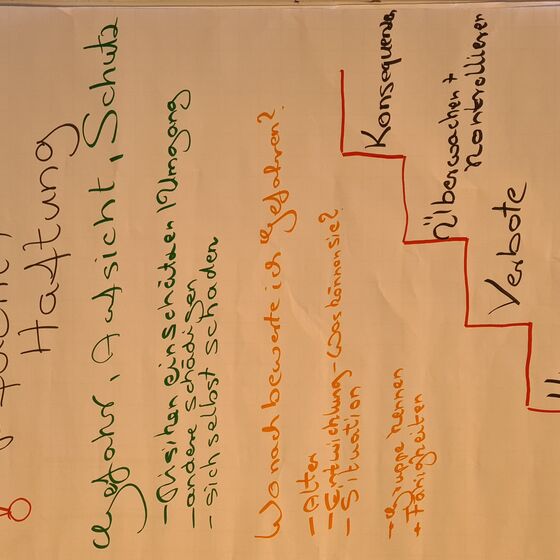 Haftung
Gefahr, Aufsicht, Schutz
- Risiken einschätzen / Umgang
- andere schädigen
- sich selbst schaden
Wonach bewerte ich Gefahren?
- Alter
- Entwicklung - was können sie?
- Situation
- Gruppe kennen
+ Fähigkeiten
Konsequenzen
Überwachen +
Kontrollieren
Verbote